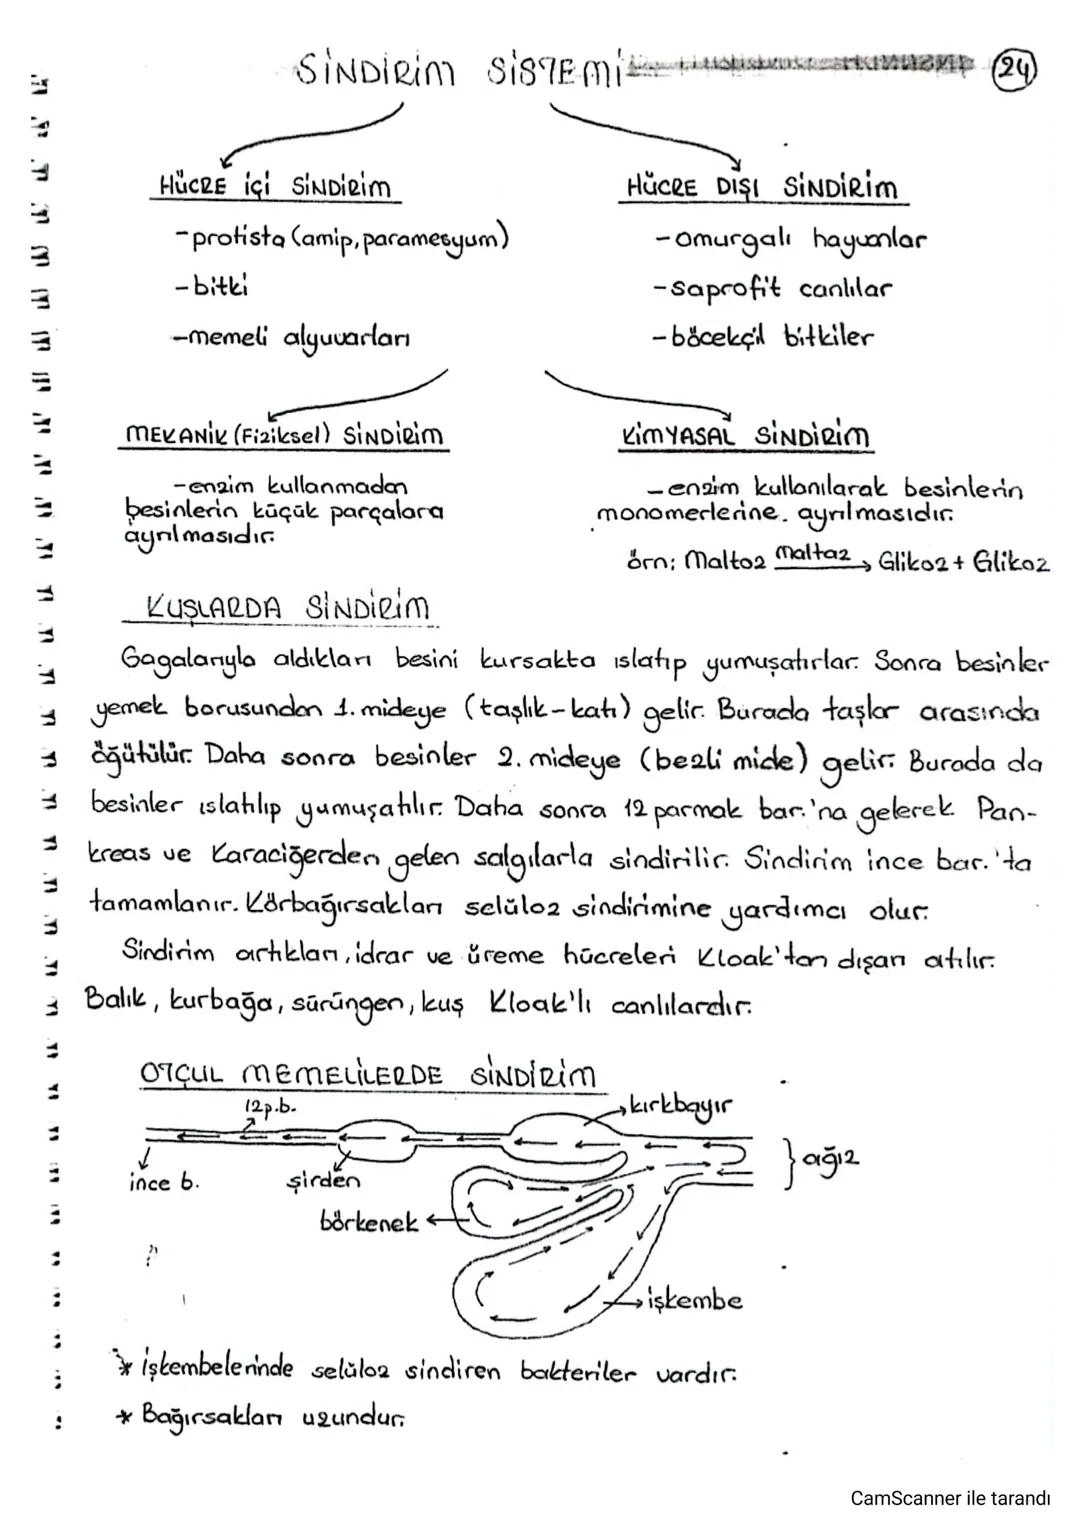 SİNDİRİM SİSTEMİ
24
HÜCRE İÇİ SİNDİRİM
-protista (amip, paramesyum)
-bitki
-memeli alyuvarları
HÜCRE DIŞI SİNDİRİM
-omurgalı hayvanlar
-saprofit canlılar
-böcekçil bitkiler
MEKANİK (Fiziksel) SİNDİRİM
-enzim kullanmadan
besinlerin küçük parçalara
ayrılmasıdır.
KİMYASAL SİNDİRİM
-enzim kullanılarak besinlerin
monomerlerine ayrılmasıdır.
örn: Maltoz Maltaz → Glikoz + Glikoz
KUŞLARDA SİNDİRİM
Gagalarıyla aldıkları besini kursakta ıslatıp yumuşatırlar. Sonra besinler
yemek borusundan 1. mideye (taşlık-katı) gelir. Burada taşlar arasında
öğütülür. Daha sonra besinler 2. mideye (bezli mide) gelir. Burada da
besinler ıslatılıp yumuşatılır. Daha sonra 12 parmak bar.'na gelerek Pan-
kreas ve Karaciğerden gelen salgılarla sindirilir. Sindirim ince bar.'ta
tamamlanır. Körbağırsakları selüloz sindirimine yardımcı olur.
Sindirim artıkları, idrar ve üreme hücreleri Kloak'tan dışarı atılır.
Balık, kurbağa, sürüngen, kuş Kloak'lı canlılardır.
OTÇUL MEMELİLERDE SİNDİRİM
12p.b.
kırkbayır
ağız
ince b.
şirden
börkenek
işkembe
* İşkembelerinde selüloz sindiren bakteriler vardır.
* Bağırsakları uzundur.
CamScanner ile tarandı